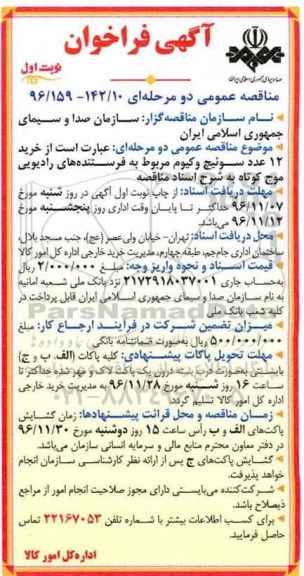 آگهی فراخوان
نوبت اول
صدا و سیمای جمهوری اسلامی ایران
مناقصه عمومی دو مرحله‌ای ۱۴۲/۱۰- ۹۶/۱۵۹
نام سازمان مناقصه‌گزار: سازمان صدا و سیمای
جمهوری اسلامی ایران
موضوع مناقصه عمومی دو مرحله‌ای: عبارت است از خرید
۱۲ عدد سوئیچ وکیوم مربوط به فرستنده‌های رادیویی
موج کوتاه به شرح اسناد مناقصه
مهلت دریافت اسناد: از چاپ نوبت اول آگهی در روز شنبه مورخ
۹۶/۱۱/۰۷ حداکثر تا پایان وقت اداری روز پنجشنبه مورخ
۹۶/۱۱/۱۲ می‌باشد.
محل دریافت اسناد: تهران- خیابان ولی‌عصر (عج)، جنب مسجد بلال،
ساختمان اداری جام‌جم، طبقه چهارم، مدیریت خرید خارجی اداره کل امور کالا
قیمت اسناد و نحوه واریز وجه: مبلغ ۲/۰۰۰/۰۰۰ ریال
به‌حساب جاری ۲۱۷۲۹۱۸۰۳۷۰۰۱ نزد بانک ملی شعبه امانیه
به نام سازمان صدا و سیمای جمهوری اسلامی ایران قابل پرداخت در
کلیه شعب بانک ملی
میزان تضمین شرکت در فرآیند ارجاع کار: مبلغ
۵۰۰/۰۰۰/۰۰۰ ریال به‌صورت ضمانتنامه بانکی
مهلت تحویل پاکات پیشنهادی: کلیه پاکات (الف، ب و ج)
بایستی به‌صورت درب بسته درون یک پاکت لاک و مهر شده حداکثر تا
ساعت ۱۶ روز شنبه مورخ ۹۶/۱۱/۲۸ به مدیریت خرید خارجی
اداره کل امور کالا تسلیم گردد.
زمان مناقصه و محل قرائت پیشنهادها: زمان گشایش
پاکت‌های الف و ب رأس ساعت ۱۵ روز دوشنبه مورخ ۹۶/۱۱/۳۰
در دفتر معاون محترم منابع مالی و سرمایه انسانی سازمان می‌باشد.
گشایش پاکت‌های ج پس از ارائه نظر کارشناسی سازمان انجام
خواهد پذیرفت.
شرکت‌کننده می‌بایستی دارای مجوز صلاحیت انجام امور از مراجع
ذیصلاح باشد.
برای کسب اطلاعات بیشتر با شماره تلفن ۲۲۱۶۷۰۵۳ تماس
حاصل فرمایید.
اداره کل امور کالا